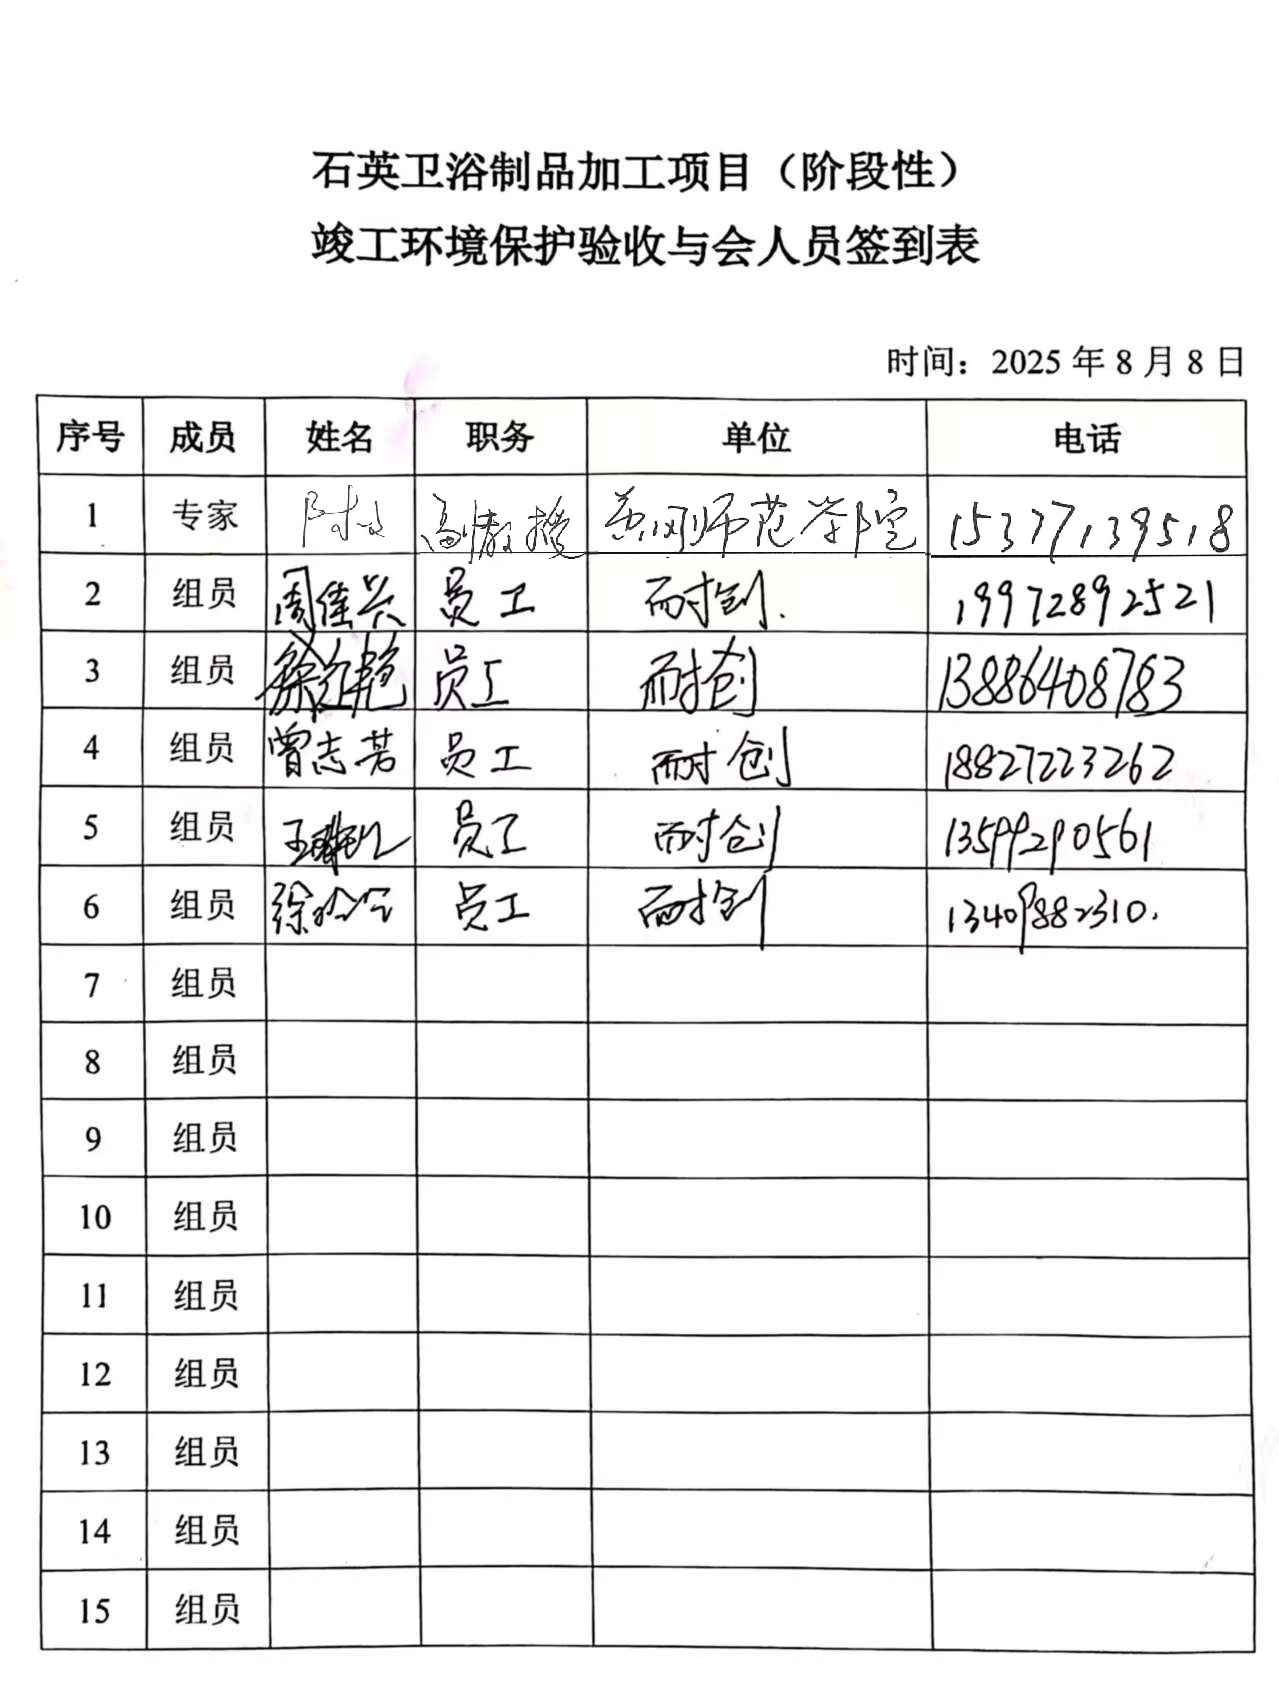 石英卫浴制品加工项目（阶段性）
竣工环境保护验收与会人员签到表
时间：2025 年 8 月 8 日
序号 成员 姓名 职务 单位 电话
1 专家 副教授 黄冈师范学院 15377139518
2 组员 周佳兴 员工 耐创 19972892521
3 组员 员工 耐创 13886408783
4 组员 曾志芳 员工 耐创 18827223262
5 组员 员工 耐创 13599290561
6 组员 员工 耐创 13409882310.
7 组员
8 组员
9 组员
10 组员
11 组员
12 组员
13 组员
14 组员
15 组员